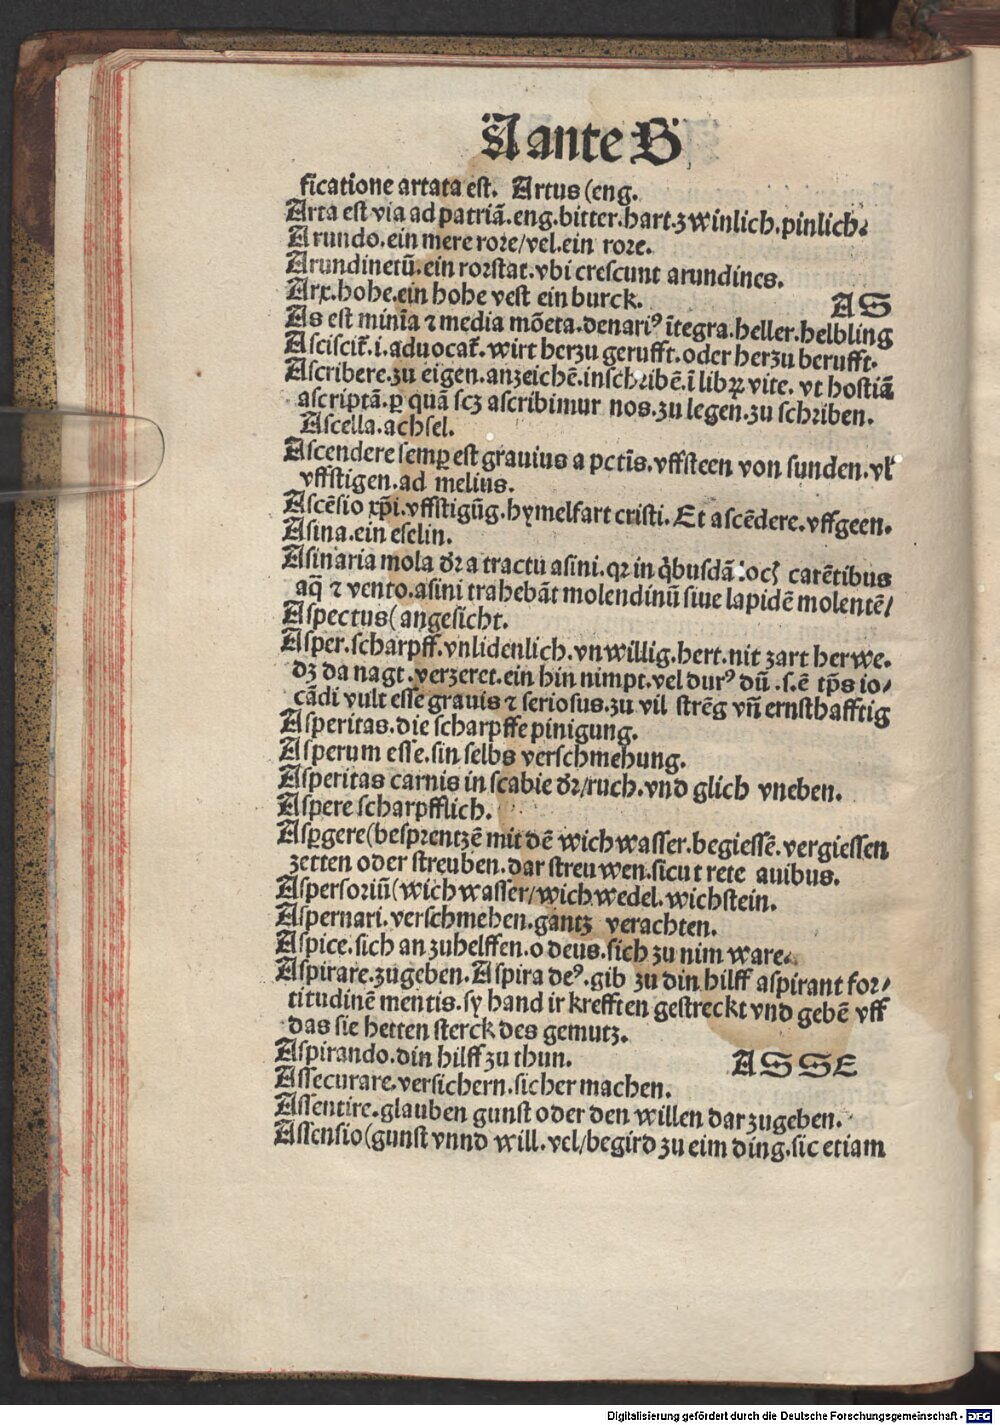 A ante S
ficatione artata est. Artus (eng.
Arta est via ad patriā.eng.bitter.hart.zwinlich.pinlich.
Arundo.ein mere rore/vel.ein rore.
Arundinetū.ein rorstat.vbi crescunt arundines.
Arx.hohe.ein hohe vest ein burck.
AS
As est minīa ⁊ media mōeta.denariꝰ ītegra.heller.helbling
Asciscit̄.i.aduocat̄.wirt herzu gerufft.oder herzu berufft.
Ascribere.zu eigen.anzeichē.inschribē.ī libꝝ vite. vt hostiā
ascriptā.ꝑ quā scꝫ ascribimur nos.zu legen.zu schriben.
Ascella.achsel.
Ascendere semꝑ est grauius a pctīs.vffsteen von sunden.vł
vffstigen.ad melius.
Ascēsio xp̄i.vffstigūg.hymelfart cristi. Et ascēdere.vffgeen.
Asina.ein eselin.
Asinaria mola dr̄ a tractu asini.qꝛ in qͥbusdā locꝭ carētibus
aq̄ ⁊ vento.asini trahebāt molendinū siue lapidē molentē/
Aspectus(angesicht.
Asper.scharpff.vnlidenlich.vnwillig.hert.nit zart herwe.
dꝫ da nagt.verzeret.ein hin nimpt.vel durꝰ dū.s.ē tp̄s io/
cādi vult esse grauis ⁊ seriosus.zu vil strēg vn̄ ernsthafftig
Asperitas.die scharpffe pinigung.
Asperum esse.sin selbs verschmehung.
Asperitas carnis in scabie dr̄/ruch.vnd glich vneben.
Aspere scharpfflich.
Asꝑgere(besprentzē mit dē wichwasser.begiessē.vergiessen
zetten oder streuben.dar streuwen.sicut rete auibus.
Aspersoriū(wichwasser/wichwedel.wichstein.
Aspernari.verschmehen.gantz verachten.
Aspice.sich an zuhelffen.o deus.sich zu nim ware.
Aspirare.zugeben.Aspira deꝰ.gib zu din hilff aspirant for/
titudinē mentis.sy hand ir krefften gestreckt vnd gebē vff
das sie hetten sterck des gemutz.
Aspirando.din hilff zu thun.
ASSE
Assecurare.versichern.sicher machen.
Assentire.glauben gunst oder den willen dar zugeben.
Assensio(gunst vnnd will.vel/begird zu eim ding.sic etiam
Digitalisierung gefördert durch die Deutsche Forschungsgemeinschaft - DFG